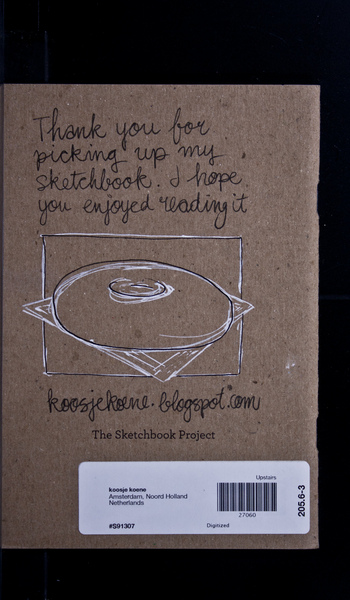 Thank you for
picking up my
sketchbook. I hope
you enjoyed reading it
koosjekoene.blogspot.com
The Sketchbook Project
Upstairs
koosje koene
Amsterdam, Noord Holland
Netherlands
27060
#S91307
Digitized
205.6-3